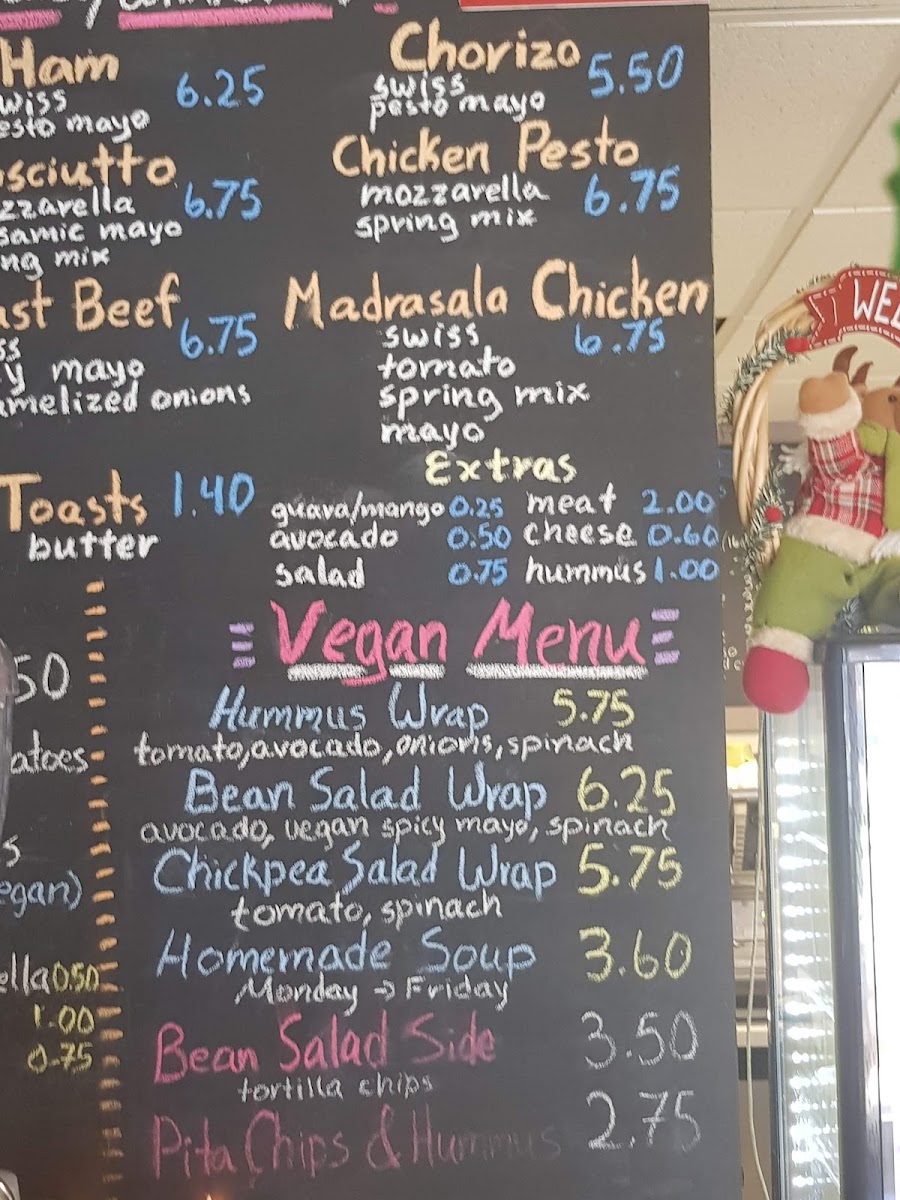 Ham 6.25
pesto mayo
6.75
mayo
mix
Beef 6.75
mayo
onions
Toasts 1.40
butter
Chorizo 5.50
swiss
pesto mayo
Chicken Pesto
mozzarella 6.75
spring mix
Madrasala Chicken
swiss 6.75
tomato
spring mix
mayo
Extras
guava/mango 0.25 meat 2.00
avocado 0.50 cheese 0.60
salad 0.75 hummus 1.00
0.50
1.00
0.75
Vegan Menu
Hummus Wrap 5.75
tomato, avocado, onions, spinach
Bean Salad Wrap 6.25
avocado, vegan spicy mayo, spinach
Chickpea Salad Wrap 5.75
tomato, spinach
Homemade Soup 3.60
Monday → Friday
Bean Salad Side 3.50
tortilla chips
Pita Chips & Hummus 2.75
WEL